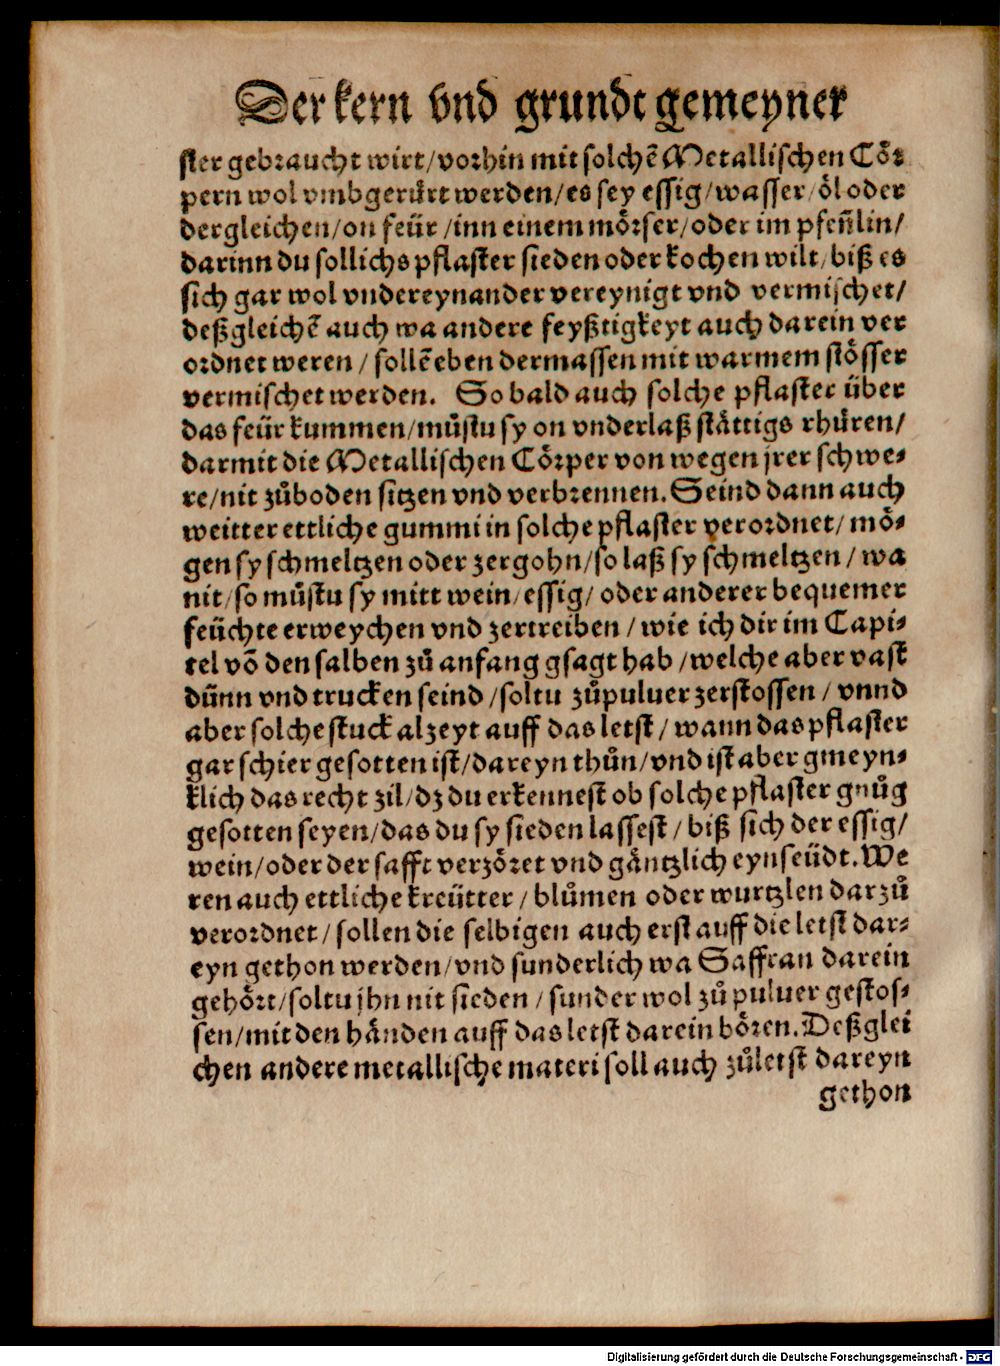 Der kern vnd grundt gemeyner
ster gebraucht wirt/vorhin mit solchẽ Metallischen Cör⸗
pern wol vmbgerůrt werden/es sey essig/wasser/öl oder
dergleichen/on feür/inn einem mörser/oder im pfeñlin/
darinn du sollichs pflaster sieden oder kochen wilt/biß es
sich gar wol vndereynander vereynigt vnd vermischet/
deßgleichẽ auch wa andere feyßtigkeyt auch darein ver
ordnet weren/sollẽ eben dermassen mit warmem stösser
vermischet werden. So bald auch solche pflaster über
das feür kummen/můstu sy on vnderlaß stättigs rhůren/
darmit die Metallischen Cörper von wegen jrer schwe⸗
re/nit zůboden sitzen vnd verbrennen. Seind dann auch
weitter ettliche gummi in solche pflaster verordnet/mö⸗
gen sy schmeltzen oder zergohn/so laß sy schmeltzen/wa
nit/so můstu sy mitt wein/essig/oder anderer bequemer
feüchte erweychen vnd zertreiben/wie ich dir im Capi⸗
tel võ den salben zů anfang gsagt hab/welche aber vast
důnn vnd trucken seind/soltu zůpuluer zerstossen/vnnd
aber solche stuck alzeyt auff das letst/wann das pflaster
gar schier gesotten ist/dareyn thůn/vnd ist aber gmeyn⸗
klich das recht zil/dz du erkennest ob solche pflaster gnůg
gesotten seyen/das du sy sieden lassest/biß sich der essig/
wein/oder der safft verzöret vnd gäntzlich eynseüdt. We
ren auch ettliche kreütter/blůmen oder wurtzlen darzů
verordnet/sollen die selbigen auch erst auff die letst dar⸗
eyn gethon werden/vnd sunderlich wa Saffran darein
gehört/soltu jhn nit sieden/sunder wol zů puluer gestos⸗
sen/mit den händen auff das letst darein bören. Deßglei
chen andere metallische materi soll auch zůletst dareyn
gethon
Digitalisierung gefördert durch die Deutsche Forschungsgemeinschaft - DFG